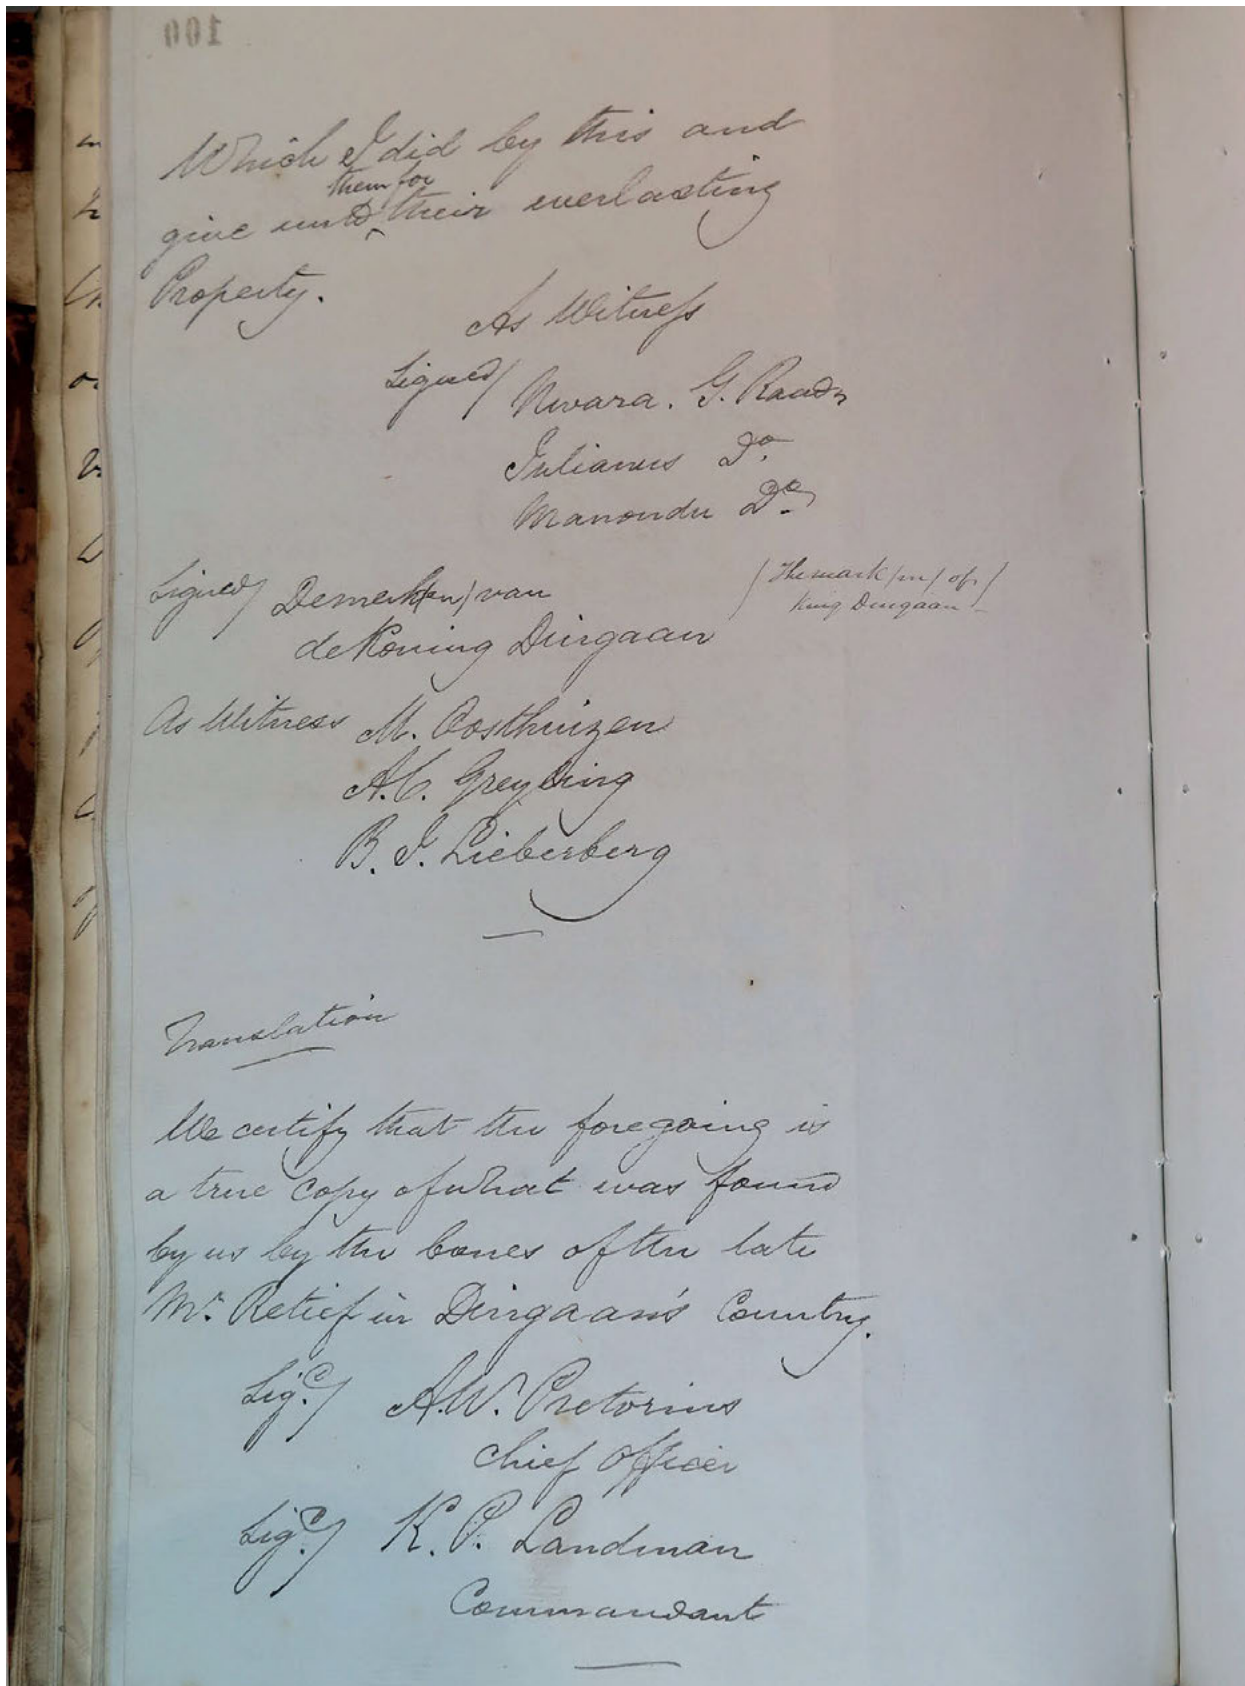 100
Which I did by this and
them for
give unto ‸ their everlasting
Property.
As Witness
Signed/ Nwara. G. Raadr
Julianus Do.
Manondu Do.
Signed/ Demerk/en/ van
/The mark /m/ of/
de Koning Dingaan
King Dingaan
As Witness M. Oosthuizen
A.C. Greyling
B. J. Lieberberg
Translation
We certify that the foregoing is
a true Copy of what was found
by us by the bones of the late
Mr. Retief in Dingaan's Country.
Sigd./ A.W. Pretorius
chief officer
Sigd./ K. P. Landman
Commandant